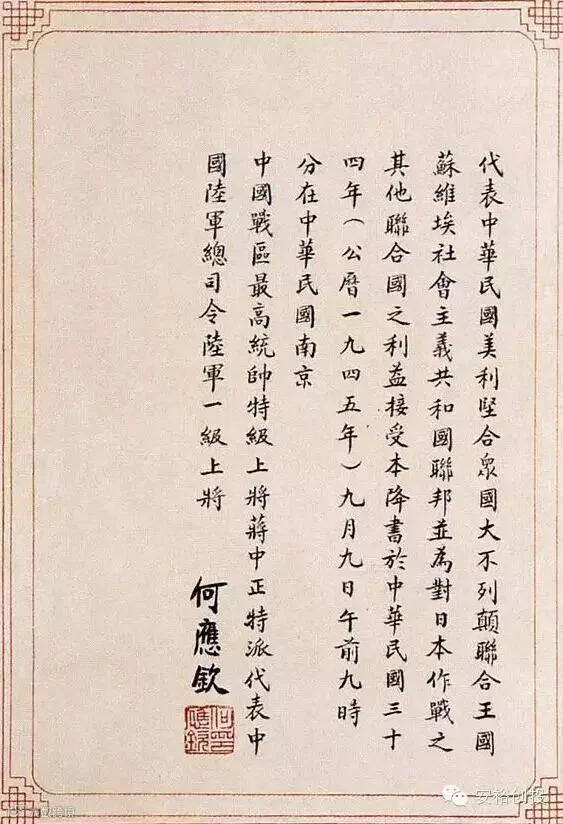 代表中華民國美利堅合衆國大不列顛聯合王國
蘇維埃社會主義共和國聯邦並為對日本作戰之
其他聯合國之利益接受本降書於中華民國三十
四年（公曆一九四五年）九月九日午前九時
分在中華民國南京
中國戰區最高統帥特級上將蔣中正特派代表中
國陸軍總司令陸軍一級上將
何應欽
安裕创投